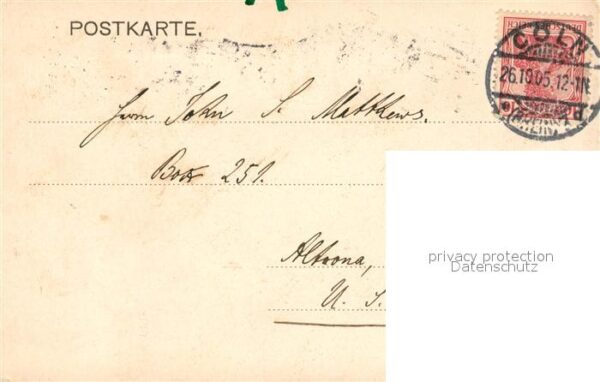 POSTKARTE.
CÖLN
26.10.05.12-1N.
Herrn John S. Matthews.
Box 251.
Altoona,
U. S.
privacy protection
Datenschutz